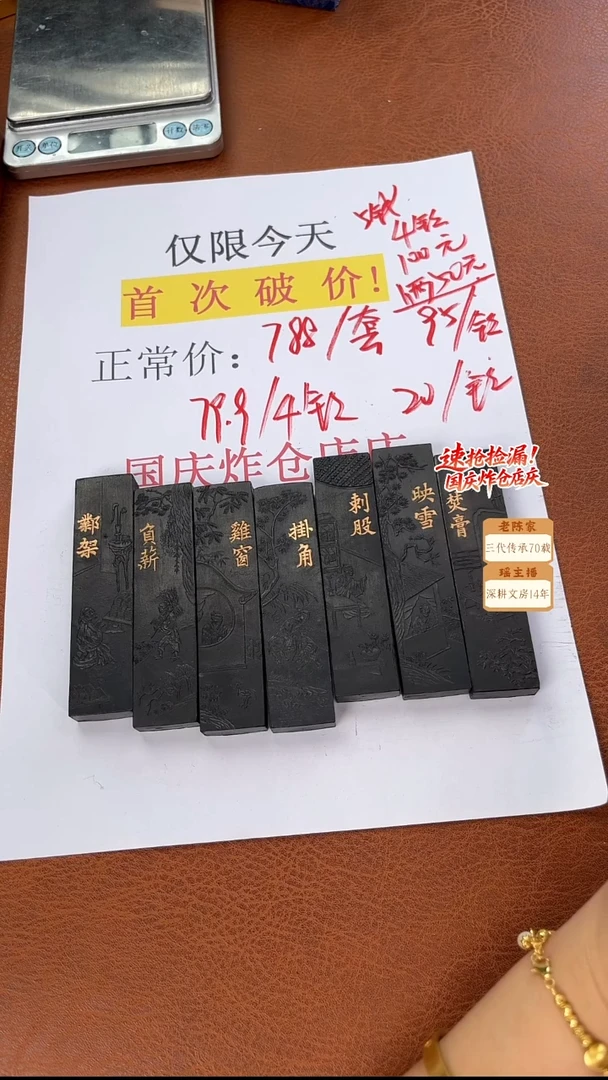 计数
仅限今天
4錠
100元
首次破价!
1两50元
正常价：
788/套
95/錠
79.9/4錠
20/錠
国庆炸仓店庆
速抢捡漏!
国庆炸仓店庆
鄴架
負薪
雞窗
掛角
刺股
映雪
焚膏
老陈家
三代传承70载
瑶主播
深耕文房14年